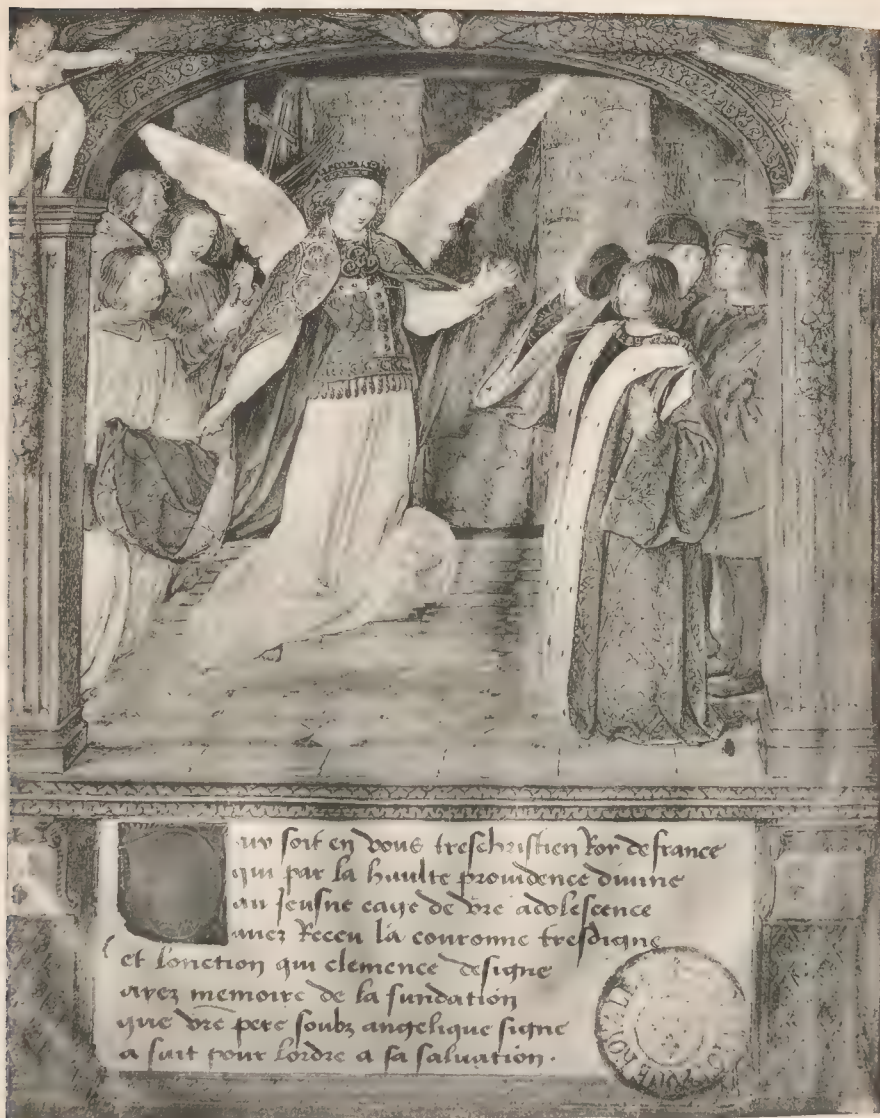 aix soit en vous treschristien Roy de france
qui par la haulte providence divine
au jeusne eage de vre adolescence
avez Receu la couronne tresdigne
et lonction qui clemence designe
ayez memoire de la fundation
que vre pere soubz angelique signe
a fait pour lordre a sa salvation.